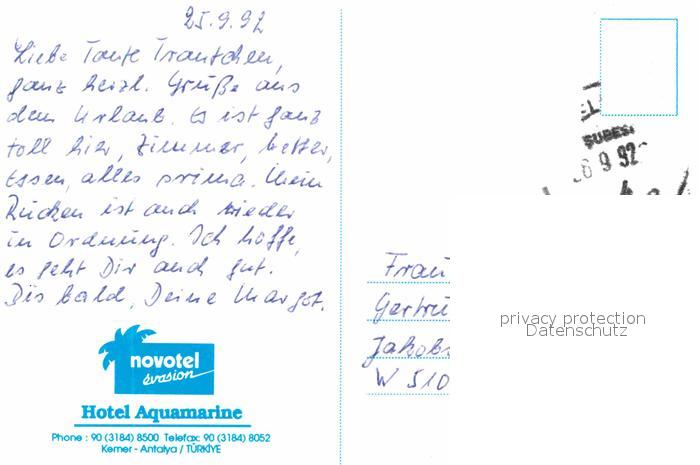 25.9.92
Liebe Tante Trautchen,
ganz herzl. Grüße aus
dem Urlaub. Es ist ganz
toll hier, Zimmer, Wetter,
Essen, alles prima. Mein
Rücken ist auch wieder
in Ordnung. Ich hoffe,
es geht Dir auch gut.
Bis bald, Deine Margot.
novotel
évasion
Hotel Aquamarine
Phone : 90 (3184) 8500 Telefax: 90 (3184) 8052
Kemer - Antalya / TÜRKİYE
ŞUBESİ
6 9 92
Frau
Gertru
Jakobs
W 510
privacy protection
Datenschutz